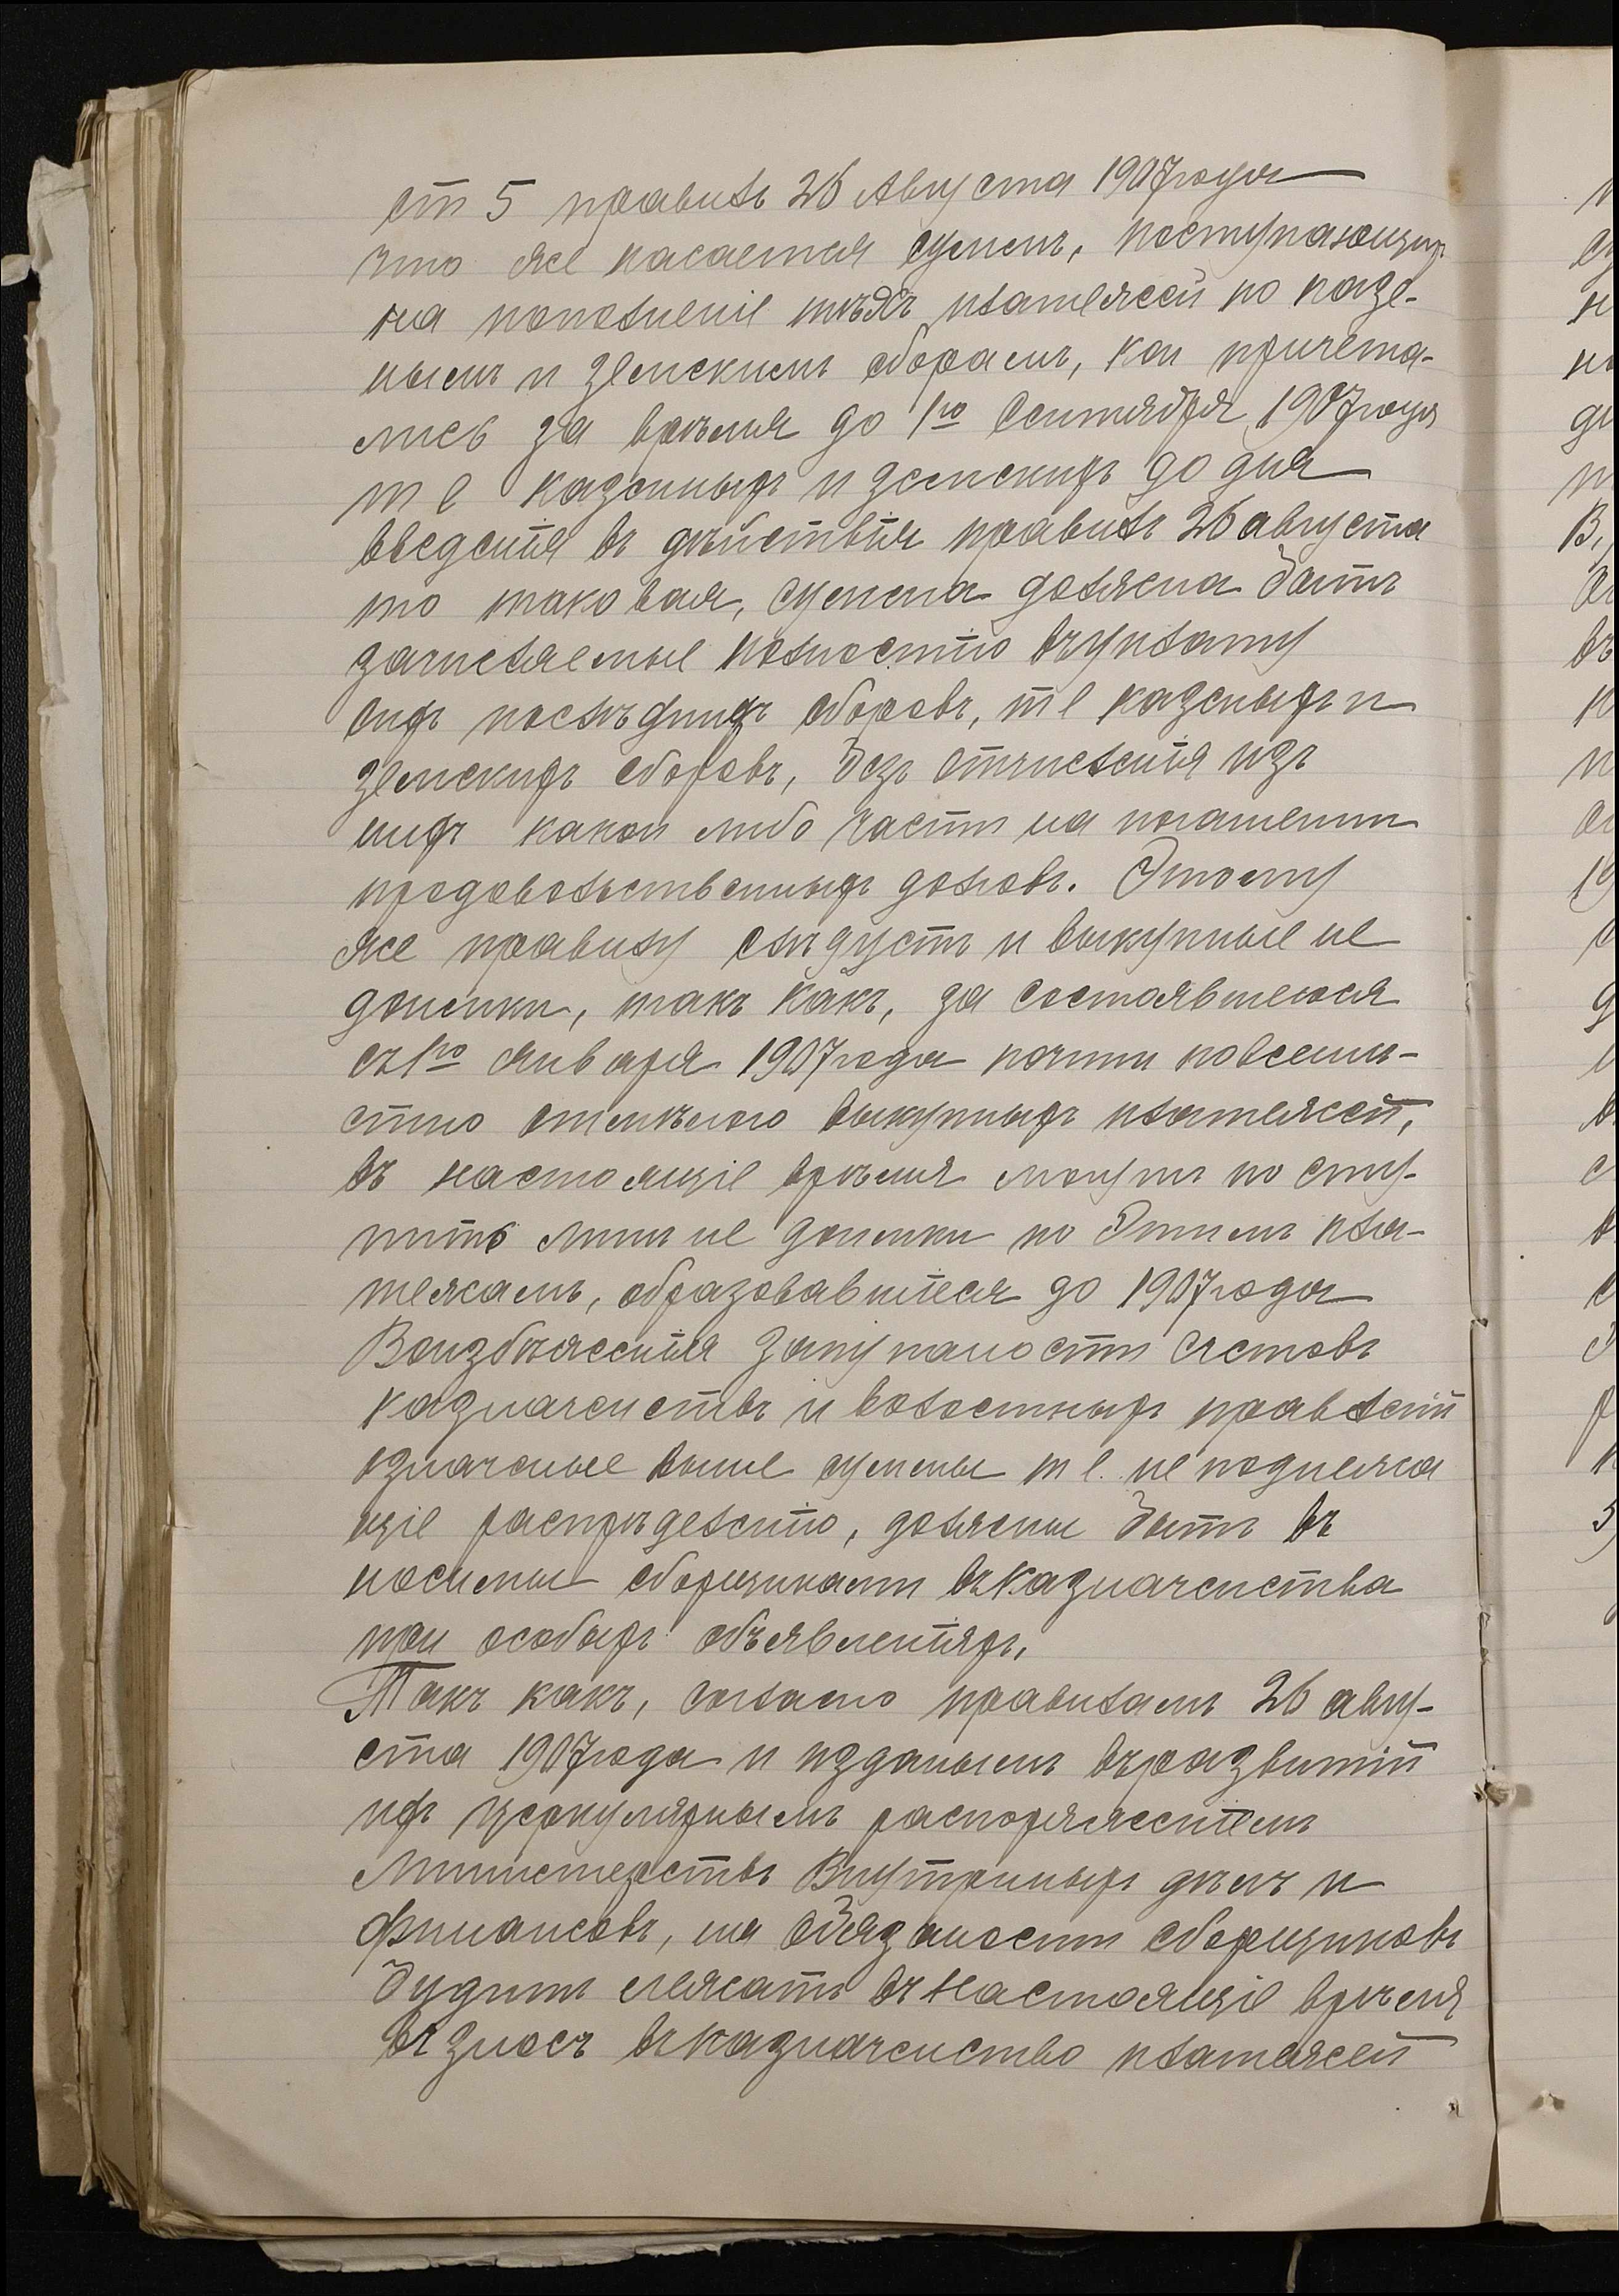 ст 5 правилъ 26 Августа 1907 года
что же касается суммъ, поступающихъ
на пополненіе тѣхъ платежей по казе-
нымъ и земскимъ сборамъ, кои причета-
лись за время до 1го Сентября 1907 года
т е казенныхъ и земскихъ до дня
введенія въ дѣйствія правилъ 26 августа
то таковая, сумма должна быть
зачисляемые полностію въ уплату
сихъ послѣднихъ сборовъ, т е казеныхъ и
земскихъ сборовъ, безъ отчисленія изъ
нихъ какой либо части на погашении
продовольственныхъ долговъ. Этому
же правилу слѣдуетъ и выкупные не
доимки, такъ какъ, за состоявшеюся
съ 1го Января 1907 года почти повсемѣ-
стно отмѣною выкупныхъ платежей,
въ настоящіе время могутъ посту-
пить лишь не доимки по Этимъ пла-
тежамъ, образовавшіеся до 1907 года
Воизбѣженія Запутаности счетовъ
казначействъ и волостныхъ правленій
означеные выше суммы т е. не подлежа
щіе распредѣленію, должны быть въ
носимы сборщиками въ Казначейства
при особыхъ объявленіяхъ.
Такъ какъ, согласно правиламъ 26 авгу-
ста 1907 года и изданымъ въ развитіи
ихъ церкулярнымъ распоряженіемъ
Министерствъ Внутринныхъ дѣлъ и
финансовъ, на обязаности сборщиковъ
будитъ лежать въ Настоящіе время
въ зносъ въ казначейство платежей